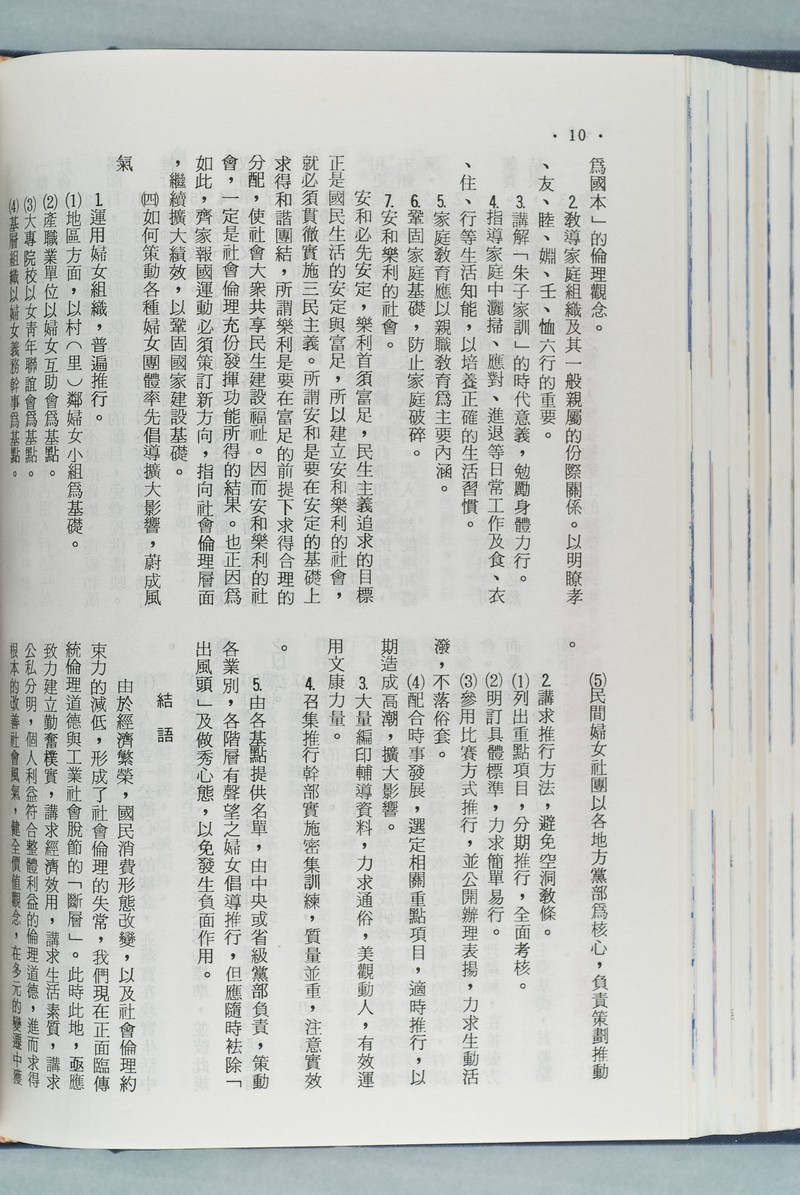 · 10 ·
為國本」的倫理觀念。
2.教導家庭組織及其一般親屬的份際關係。以明瞭孝
、友、睦、婣、壬、恤六行的重要。
3.講解「朱子家訓」的時代意義，勉勵身體力行。
4.指導家庭中灑掃、應對、進退等日常工作及食、衣
、住、行等生活知能，以培養正確的生活習慣。
5.家庭敎育應以親職敎育為主要內涵。
6.鞏固家庭基礎，防止家庭破碎。
7.安和樂利的社會。
安和必先安定，樂利首須富足，民生主義追求的目標
正是國民生活的安定與富足，所以建立安和樂利的社會，
就必須貫徹實施三民主義。所謂安和是要在安定的基礎上
求得和諧團結，所謂樂利是要在富足的前提下求得合理的
分配，使社會大衆共享民生建設福祉。因而安和樂利的社
會，一定是社會倫理充份發揮功能所得的結果。也正因為
如此，齊家報國運動必須策訂新方向，指向社會倫理層面
，繼續擴大績效，以鞏固國家建設基礎。
㈣如何策動各種婦女團體率先倡導擴大影響，蔚成風
氣
1.運用婦女組織，普遍推行。
⑴地區方面，以村（里）鄰婦女小組為基礎。
⑵產職業單位以婦女互助會為基點。
⑶大專院校以女青年聯誼會為基點。
⑷基層組織以婦女義務幹事為基點。
⑸民間婦女社團以各地方黨部為核心，負責策劃推動
。
2.講求推行方法，避免空洞敎條。
⑴列出重點項目，分期推行，全面考核。
⑵明訂具體標準，力求簡單易行。
⑶參用比賽方式推行，並公開辦理表揚，力求生動活
潑，不落俗套。
⑷配合時事發展，選定相關重點項目，適時推行，以
期造成高潮，擴大影響。
3.大量編印輔導資料，力求通俗，美觀動人，有效運
用文康力量。
4.召集推行幹部實施密集訓練，質量並重，注意實效
。
5.由各基點提供名單，由中央或省級黨部負責，策動
各業別，各階層有聲望之婦女倡導推行，但應隨時袪除「
出風頭」及做秀心態，以免發生負面作用。
結語
由於經濟繁榮，國民消費形態改變，以及社會倫理約
束力的減低，形成了社會倫理的失常，我們現在正面臨傳
統倫理道德與工業社會脫節的「斷層」。此時此地，亟應
致力建立勤奮樸實，講求經濟效用，講求生活素質，講求
公私分明，個人利益符合整體利益的倫理道德，進而求得
根本的改善社會風氣，健全價值觀念，在多元的變遷中獲